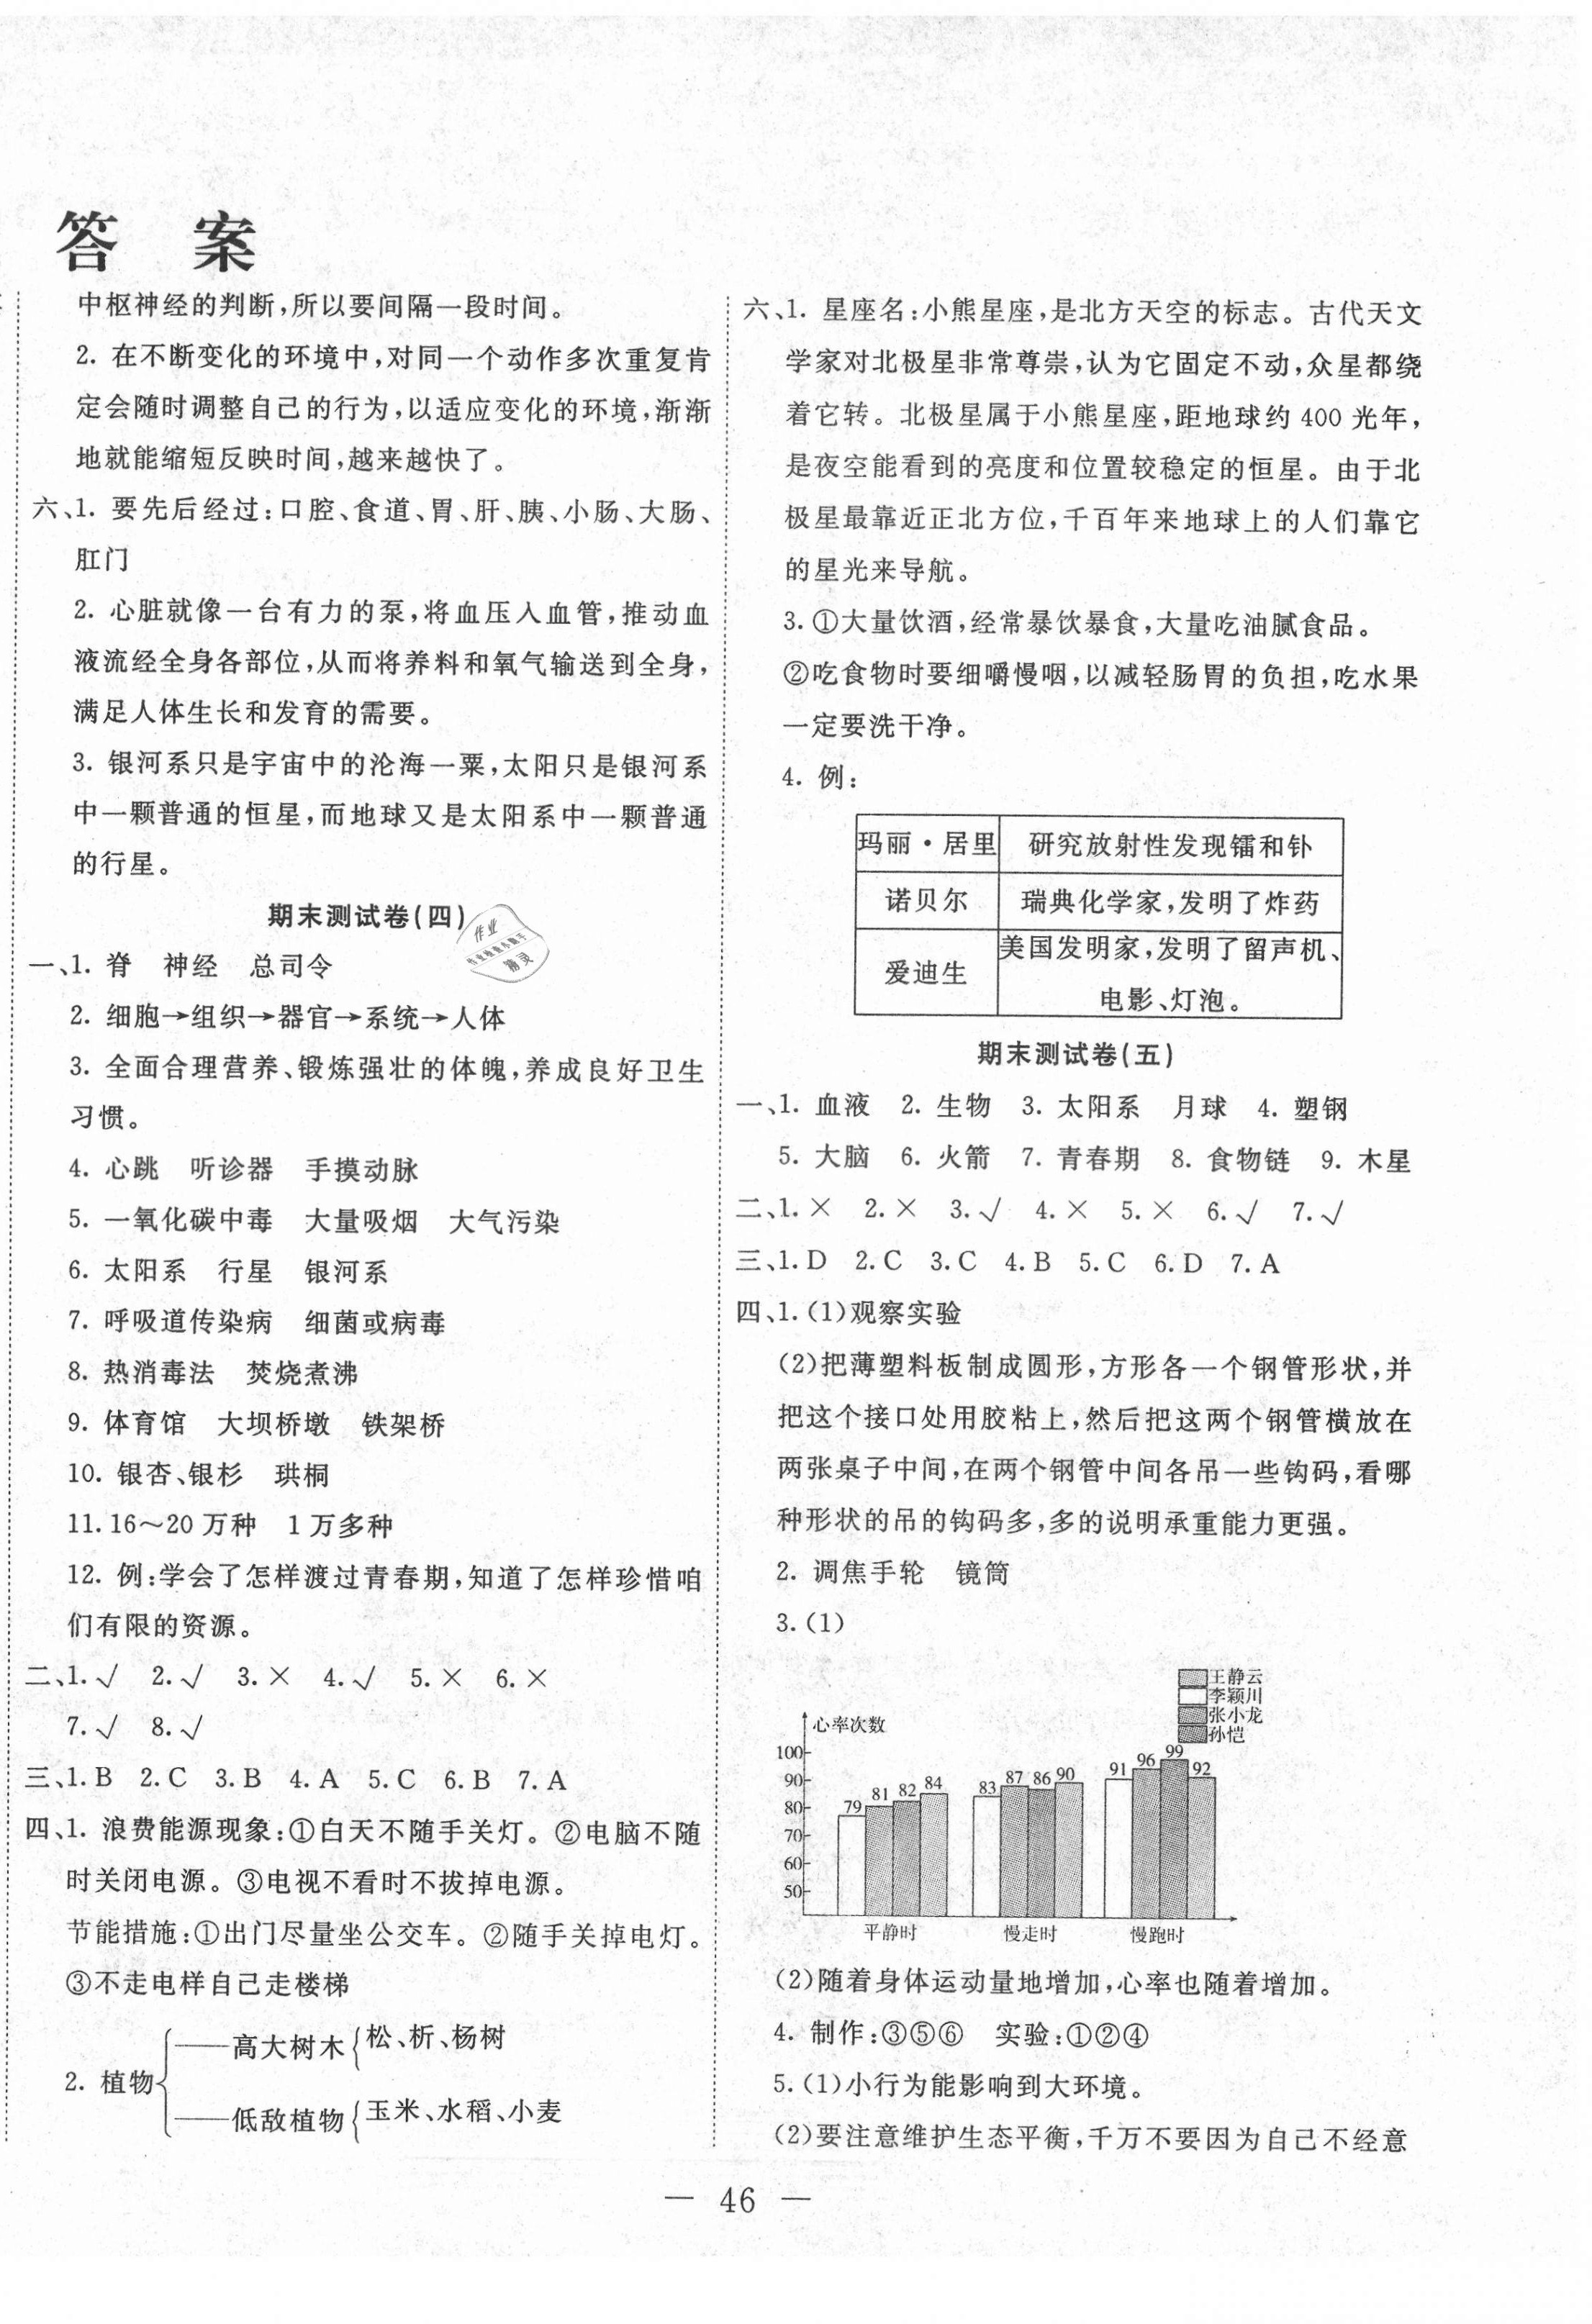 答 案
中枢神经的判断,所以要间隔一段时间。
2. 在不断变化的环境中,对同一个动作多次重复肯
定会随时调整自己的行为,以适应变化的环境,渐渐
地就能缩短反映时间,越来越快了。
六、1. 要先后经过:口腔、食道、胃、肝、胰、小肠、大肠、
肛门
2. 心脏就像一台有力的泵,将血压入血管,推动血
液流经全身各部位,从而将养料和氧气输送到全身,
满足人体生长和发育的需要。
3. 银河系只是宇宙中的沧海一粟,太阳只是银河系
中一颗普通的恒星,而地球又是太阳系中一颗普通
的行星。
期末测试卷(四)
一、1. 脊 神经 总司令
2. 细胞→组织→器官→系统→人体
3. 全面合理营养、锻炼强壮的体魄,养成良好卫生
习惯。
4. 心跳 听诊器 手摸动脉
5. 一氧化碳中毒 大量吸烟 大气污染
6. 太阳系 行星 银河系
7. 呼吸道传染病 细菌或病毒
8. 热消毒法 焚烧煮沸
9. 体育馆 大坝桥墩 铁架桥
10. 银杏、银杉 珙桐
11. 16～20 万种 1 万多种
12. 例:学会了怎样渡过青春期,知道了怎样珍惜咱
们有限的资源。
二、1. √ 2. √ 3. × 4. √ 5. × 6. ×
7. √ 8. √
三、1. B 2. C 3. B 4. A 5. C 6. B 7. A
四、1. 浪费能源现象:①白天不随手关灯。②电脑不随
时关闭电源。③电视不看时不拔掉电源。
节能措施:①出门尽量坐公交车。②随手关掉电灯。
③不走电样自己走楼梯
2. 植物
高大树木 松、析、杨树
低敌植物 玉米、水稻、小麦
六、1. 星座名:小熊星座,是北方天空的标志。古代天文
学家对北极星非常尊崇,认为它固定不动,众星都绕
着它转。北极星属于小熊星座,距地球约 400 光年,
是夜空能看到的亮度和位置较稳定的恒星。由于北
极星最靠近正北方位,千百年来地球上的人们靠它
的星光来导航。
3. ①大量饮酒,经常暴饮暴食,大量吃油腻食品。
②吃食物时要细嚼慢咽,以减轻肠胃的负担,吃水果
一定要洗干净。
4. 例:
玛丽·居里 研究放射性发现镭和钋
诺贝尔 瑞典化学家,发明了炸药
爱迪生 美国发明家,发明了留声机、
电影、灯泡。
期末测试卷(五)
一、1. 血液 2. 生物 3. 太阳系 月球 4. 塑钢
5. 大脑 6. 火箭 7. 青春期 8. 食物链 9. 木星
二、1. × 2. × 3. √ 4. × 5. × 6. √ 7. √
三、1. D 2. C 3. C 4. B 5. C 6. D 7. A
四、1. (1)观察实验
(2)把薄塑料板制成圆形,方形各一个钢管形状,并
把这个接口处用胶粘上,然后把这两个钢管横放在
两张桌子中间,在两个钢管中间各吊一些钩码,看哪
种形状的吊的钩码多,多的说明承重能力更强。
2. 调焦手轮 镜筒
3. (1)
王静云
李颖川
张小龙
孙恺
心率次数
100
90
80
70
60
50
79 81 82 84
83 87 86 90
91 96 99 92
平静时 慢走时 慢跑时
(2)随着身体运动量地增加,心率也随着增加。
4. 制作:③⑤⑥ 实验:①②④
5. (1)小行为能影响到大环境。
(2)要注意维护生态平衡,千万不要因为自己不经意
— 46 —